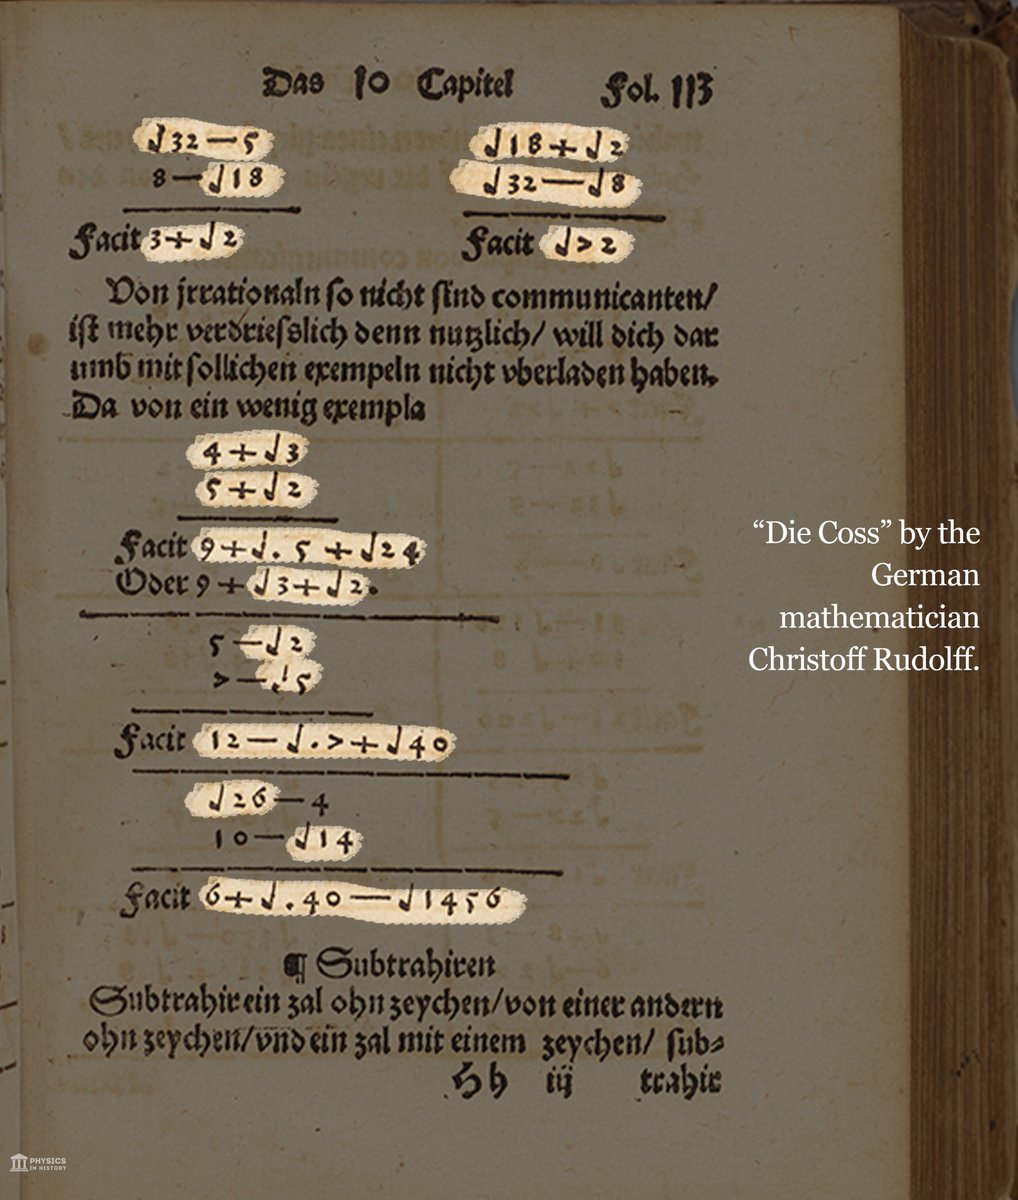 Das 10 Capitel Fol. 113
√32 — 5
8 — √18
Facit 3 + √2
√18 + √2
√32 — √8
Facit √72
Von jrrationaln so nicht sind communicanten/
ist mehr verdriesslich denn nutzlich/ will dich dar
umb mit sollichen exempeln nicht vberladen haben.
Da von ein wenig exempla
4 + √3
5 + √2
Facit 9 + √. 5 + √24
Oder 9 + √3 + √2.
5 — √2
7 — √5
Facit 12 — √. 7 + √40
√26 — 4
10 — √14
Facit 6 + √. 40 — √1456
¶ Subtrahiren
Subtrahir ein zal ohn zeychen/ von einer andern
ohn zeychen/ vnd ein zal mit einem zeychen/ sub-
Hh iij trahir
“Die Coss” by the
German
mathematician
Christoff Rudolff.
PHYSICS
IN HISTORY